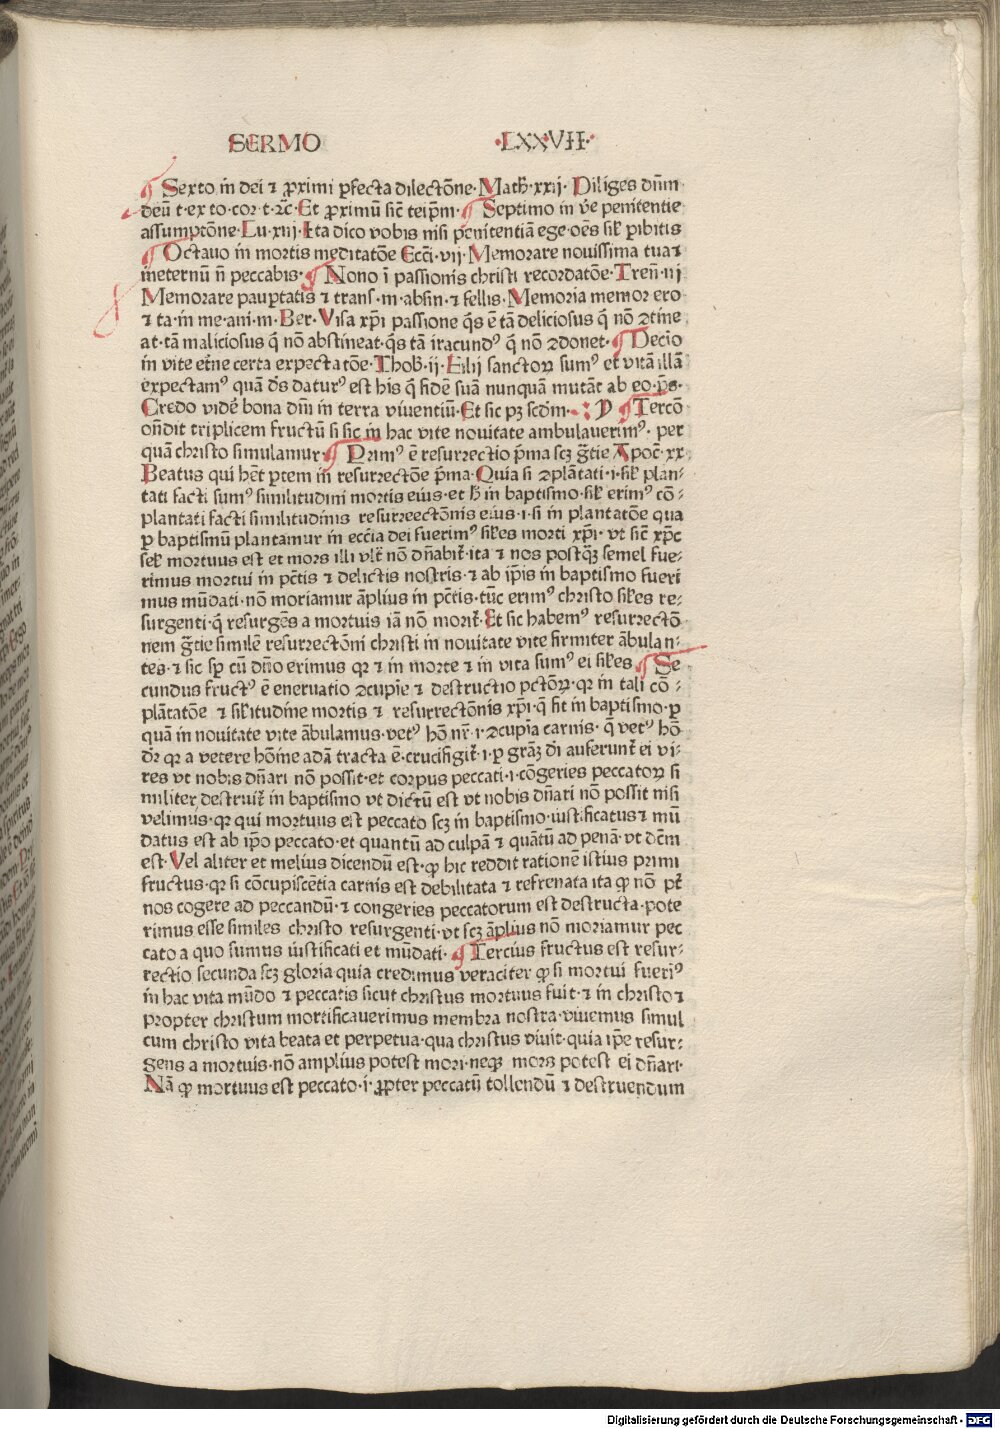 SERMO ·LXXVII·
¶ Sexto in dei ⁊ ꝓximi ꝑfecta dilectōne· Math̄·xxij· Diliges dn̄m
deū t·ex to·cor·t·⁊c̄· Et ꝓximū sic̄ teip̄m· ¶ Septimo in v̄e penitentie
assumptōne· Lu·xiij· Ita dico vobis nisi penitentiā ege·oēs sil̄r ꝑibitis
¶ Octauo in mortis meditatōe Ecc̄i·vij· Memorare nouissima tua ⁊
ineternū n̄ peccabis· ¶ Nono ī passionis christi recordatōe· Tren̄·iij
Memorare pauꝑtatis ⁊ trans̄·m·absin·⁊ fellis· Memoria memor ero
⁊ ta·in me·ani·m· Ber· Visa xp̄i passione q̄s ē tā deliciosus q̄ nō ꝯtine
at·tā maliciosus q̄ nō abstineat·q̄s tā iracundꝰ q̄ nō ꝯdonet· ¶ Decio
in vite et̄ne certa expectatōe· Thob̄·ij· Filij sanctoꝝ sumꝰ et vitā illā
expectamꝰ quā d̄s daturꝰ est his q̄ fidē suā nunquā mutāt ab eo·p̄s·
Credo vidē bona dn̄i in terra viuentiū· Et sic pꝫ scd̄m· ¶ Tercō
on̄dit triplicem fructū si sic in hac vite nouitate ambulauerimꝰ· per
quā christo simulamur· ¶ Primꝰ ē resurrectio p̄ma scꝫ gr̄tie Apoc̄·xx
Beatus qui hēt ꝑtem in resurrectōe p̄ma· Quia si ꝯplātati·i·sil̄r plan-
tati facti sumꝰ similitudini mortis eius·et h̄ in baptismo·sil̄r erimꝰ cō-
plantati facti similitudinis resurreectōnis eius·i·si in plantatōe qua
ꝑ baptismū plantamur in ecc̄ia dei fuerimꝰ sil̄es morti xp̄i· vt sic̄ xp̄c
sel̄ mortuus est et mors illi vlt̄ nō dn̄abit̄·ita ⁊ nos postq̄ꝫ semel fue-
rimus mortui in pc̄tis ⁊ delictis nostris·⁊ ab ip̄is in baptismo fueri
mus mūdati·nō moriamur āplius in pc̄tis·tūc erimꝰ christo sil̄es re-
surgenti·q̄ resurgēs a mortuis iā nō morit̄· Et sic habemꝰ resurrectō
nem gr̄tie similē resurrectōni christi in nouitate vite firmiter ābulan-
tes·⁊ sic sꝑ cū dn̄o erimus qꝛ ⁊ in morte ⁊ in vita sumꝰ ei sil̄es ¶ Se
cundus fructꝰ ē eneruatio ꝯcupīe ⁊ destructio pctōꝝ·qꝛ in tali cō-
plātatōe ⁊ sil̄itudine mortis ⁊ resurrectōnis xp̄i·q̄ fit in baptismo·ꝑ
quā in nouitate vite ābulamus·vetꝰ hō nr̄·i·ꝯcupīa carnis· q̄ vetꝰ hō
dr̄ qꝛ a vetere hōine adā tracta ē·crucifigit̄·i·ꝑ grāꝫ di auferunt̄ ei vi-
res vt nobis dn̄ari nō possit·et corpus peccati·i·cōgeries peccatoꝝ si
militer destruit̄ in baptismo vt dictū est vt nobis dn̄ari nō possit nisi
velimus·qꝛ qui mortuus est peccato scꝫ in baptismo·iustificatus ⁊ mū
datus est ab ip̄o peccato·et quantū ad culpā ⁊ quātū ad penā·vt dc̄m
est· Vel aliter et melius dicendū est·ꝙ hic reddit rationē istius primi
fructus·qꝛ si cōcupiscētia carnis est debilitata ⁊ refrenata ita ꝙ nō pt̄
nos cogere ad peccandū·⁊ congeries peccatorum est destructa·pote
rimus esse similes christo resurgenti·vt scꝫ āplius nō moriamur pec
cato a quo sumus iustificati et mūdati· ¶ Tercius fructus est resur-
rectio secunda scꝫ gloria quia credimus veraciter ꝙ si mortui fuerīꝰ
in hac vita mūdo ⁊ peccatis sicut christus mortuus fuit·⁊ in christo ⁊
propter christum mortificauerimus membra nostra·viuemus simul
cum christo vita beata et perpetua·qua christus viuit·quia ip̄e resur-
gens a mortuis·nō amplius potest mori·neqꝫ mors potest ei dn̄ari·
Nā ꝙ mortuus est peccato·i·ꝓpter peccatū tollendū ⁊ destruendum
Digitalisierung gefördert durch die Deutsche Forschungsgemeinschaft - DFG